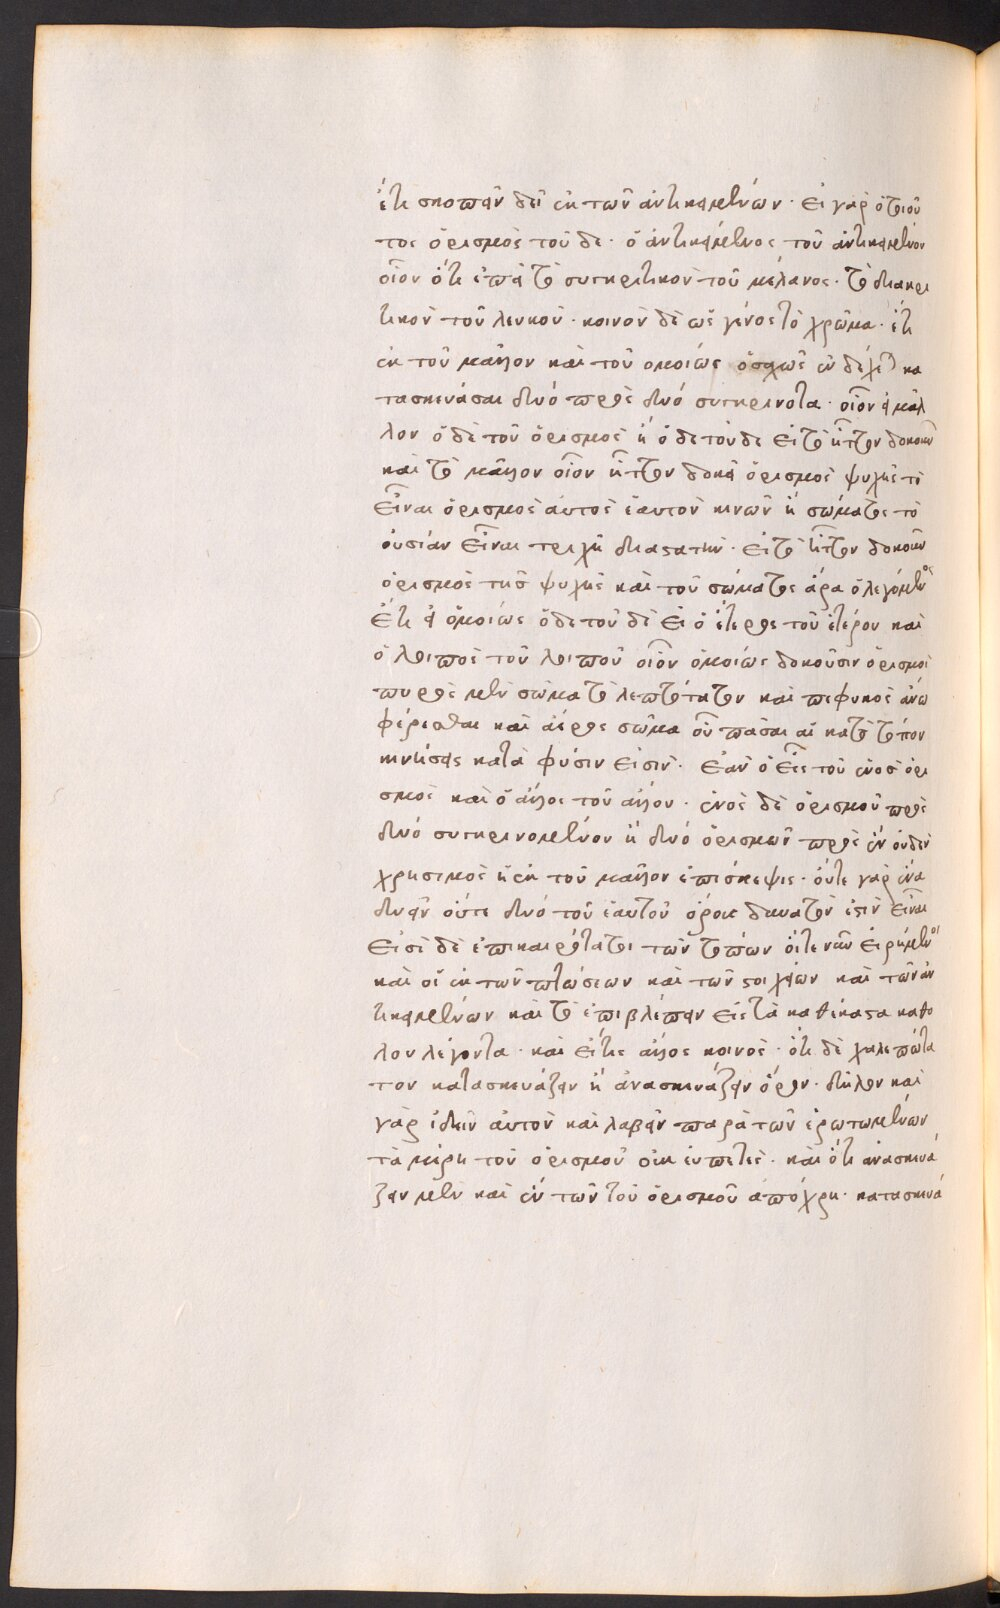 ἔτι σκοπεῖν δεῖ ἐκ τῶν ἀντικειμένων· εἰ γὰρ ὁ τοιοῦ
τος ὁρισμὸς τοῦδε· ὁ ἀντικείμενος τοῦ ἀντικειμένου
οἷον ὅτι ἐπεὶ τὸ συγκριτικὸν τοῦ μέλανος· τὸ διακρι
τικὸν τοῦ λευκοῦ· κοινὸν δὲ ὡς γένος τὸ χρῶμα· ἔτι
ἐκ τοῦ μᾶλλον καὶ τοῦ ὁμοίως ὁσαχῶς ἐνδέχεται κα
τασκευάσαι δυό πρὸς δυό συγκρίνοντα· οἷον εἰ μᾶλ
λον ὁ δὲ τοῦ ὁρισμὸς ἢ ὁ δὲ τοῦδε εἰ τὸ ἧττον δοκοῦν
καὶ τὸ μᾶλλον οἷον ἧττον δοκεῖ ὁρισμὸς ψυχῆς τὸ
εἶναι ὁρισμὸς αὐτὸς ἑαυτὸν κινῶν ἢ σώματος τὸ
οὐσίαν εἶναι τριχῆ διαστατήν· εἰ τὸ ἧττον δοκοῦν
ὁρισμὸς τῆς ψυχῆς καὶ τοῦ σώματος ἄρα ὁ λεγόμενος
Ἔτι εἰ ὁμοίως ὅδε τοῦδε εἰ ὁ ἕτερος τοῦ ἑτέρου καὶ
ὁ λοιπὸς τοῦ λοιποῦ οἷον ὁμοίως δοκοῦσιν ὁρισμοὶ
πυρὸς μὲν σῶμα τὸ λεπτότατον καὶ πεφυκὸς ἄνω
φέρεσθαι καὶ ἀέρος σῶμα οὗ πᾶσαι αἱ κατὰ τόπον
κινήσεις κατὰ φύσιν εἰσίν· Ἐὰν ὁ εἷς τοῦ ἑνὸς ὁρι
σμὸς καὶ ὁ ἄλλος τοῦ ἄλλου· ἑνὸς δὲ ὁρισμοῦ πρὸς
δυό συγκρινομένου ἢ δυό ὁρισμῶν πρὸς ἓν οὐδὲν
χρήσιμος ἡ ἐκ τοῦ μᾶλλον ἐπίσκεψις· οὔτε γὰρ ἕνα
δυεῖν οὔτε δυό τοῦ ἑαυτοῦ ὅρους δυνατόν ἐστιν εἶναι
Εἰσὶ δὲ ἐπικαιρότατοι τῶν τόπων οἵ τε νῦν εἰρημένοι
καὶ οἱ ἐκ τῶν πτώσεων καὶ τῶν στοιχείων καὶ τῶν ἀν
τικειμένων καὶ τὸ ἐπιβλέπειν εἰς τὰ καθέκαστα καθό
λου λέγοντα· καὶ εἴ τις ἄλλος κοινός· ὅτι δὲ χαλεπώτα
τον κατασκευάζειν ἢ ἀνασκευάζειν ὅρον· δῆλον καὶ
γὰρ ἰδεῖν αὐτὸν καὶ λαβεῖν παρὰ τῶν ἐρωτωμένων
τὰ μέρη τοῦ ὁρισμοῦ οὐκ εὐπετές· καὶ ὅτι ἀνασκευά
ζειν μὲν καὶ ἓν τῶν τοῦ ὁρισμοῦ ἀπόχρη· κατασκευά